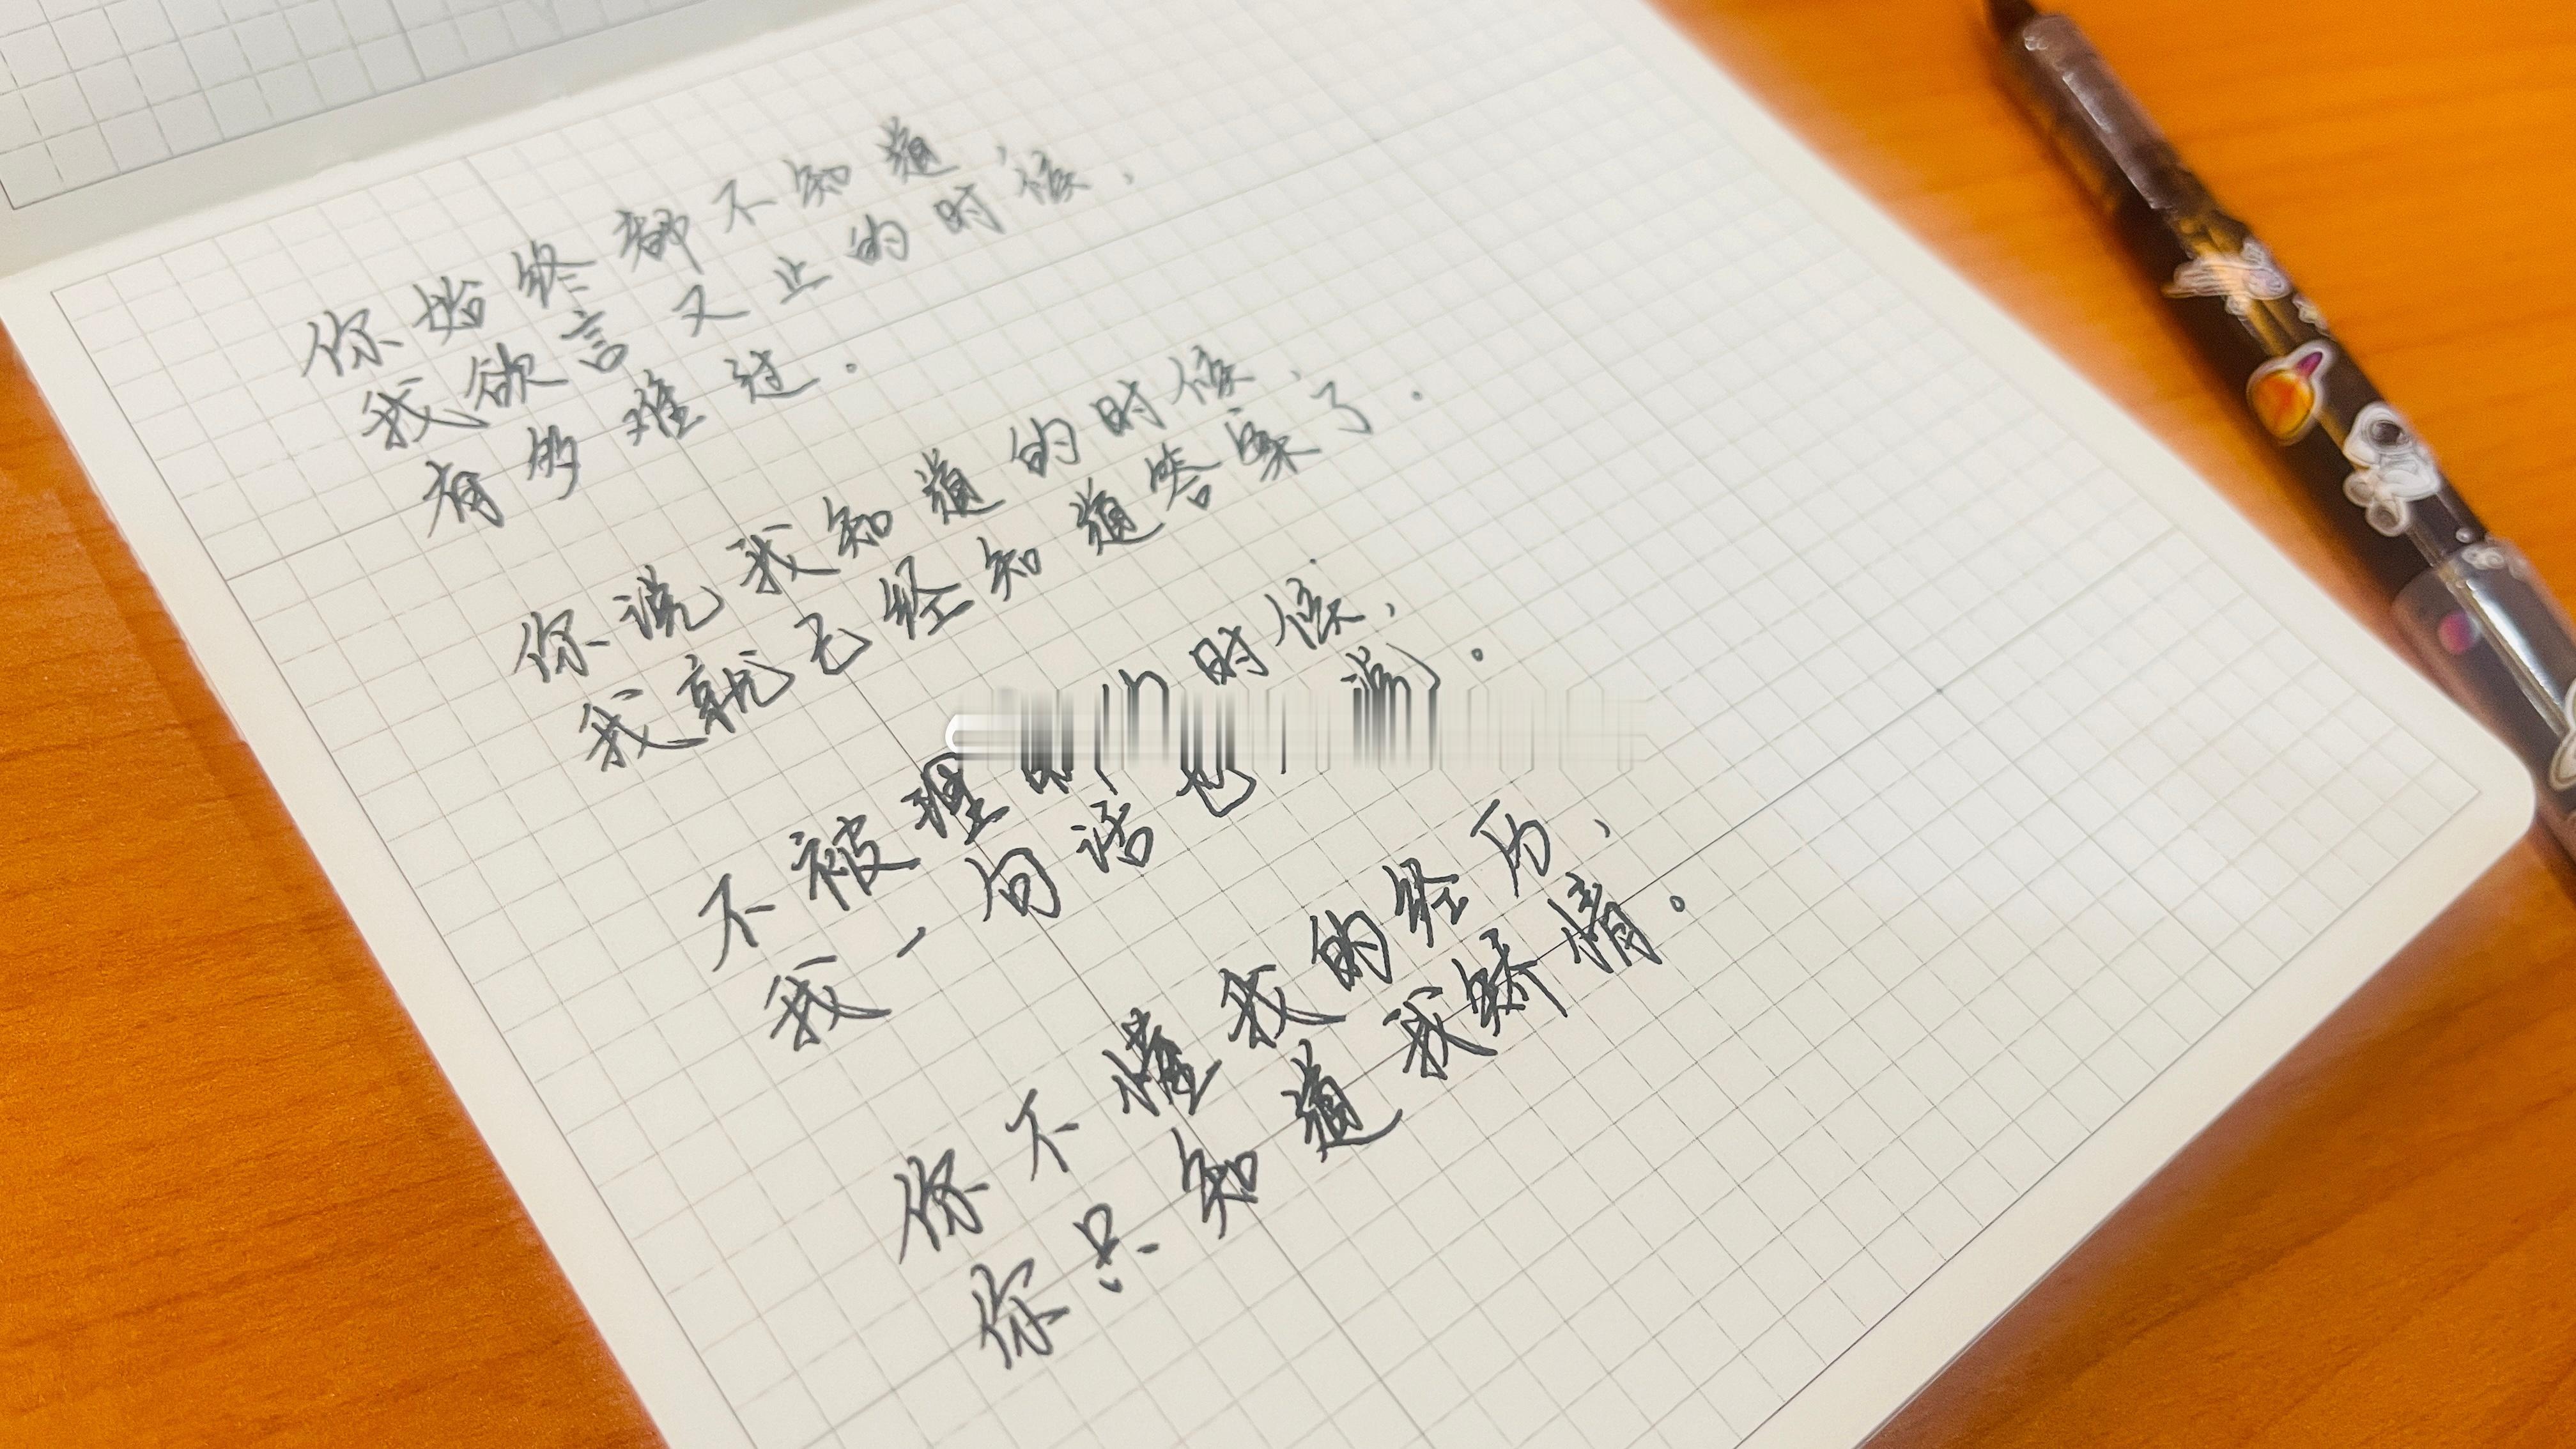 你始终都不知道
我欲言又止的时候，
有多难过。
你说我知道的时候，
我就已经知道答案了。
不被理的时候，
我一句话也说。
你不懂我的经历，
你只知道我矫情。